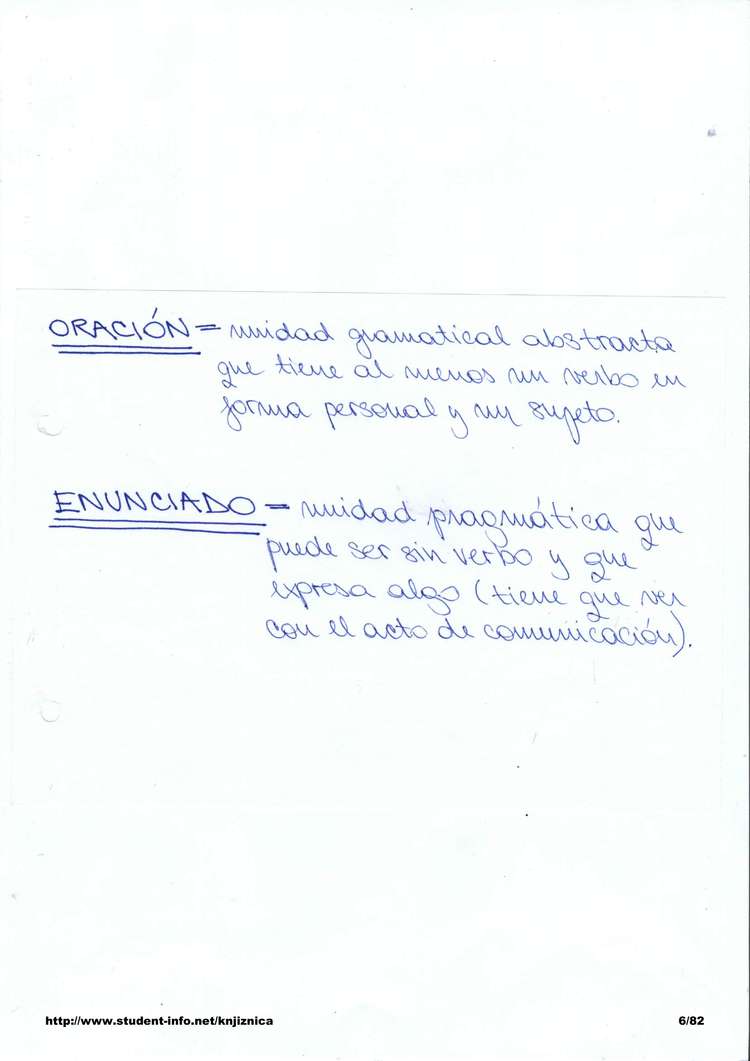 ORACIÓN = unidad gramatical abstracta
que tiene al menos un verbo en
forma personal y un sujeto.
ENUNCIADO = unidad pragmática que
puede ser sin verbo y que
expresa algo (tiene que ver
con el acto de comunicación).
http://www.student-info.net/knjiznica 6/82